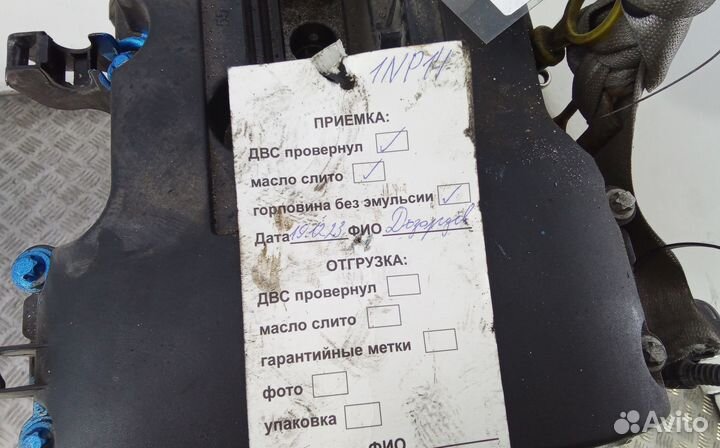 1NP14
ПРИЕМКА:
ДВС провернул
масло слито
горловина без эмульсии
Дата 19.12.23 ФИО
ОТГРУЗКА:
ДВС провернул
масло слито
гарантийные метки
фото
упаковка
ФИО
Avito